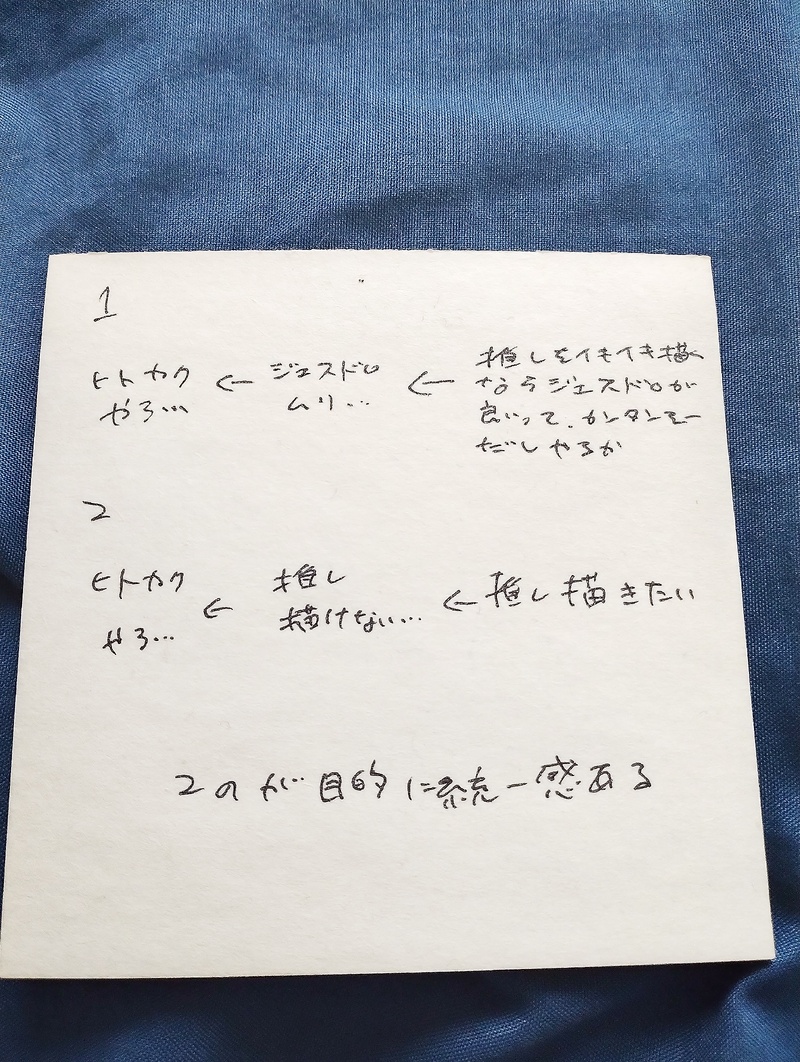 1
ヒトカク
やろ…
←
ジェスドロ
ムリ…
←
推しをイキイキ描く
ならジェスドロが
良いって、カンタンそー
だしやるか
2
ヒトカク
やろ…
←
推し
描けない…
←
推し描きたい
2のが目的に統一感ある